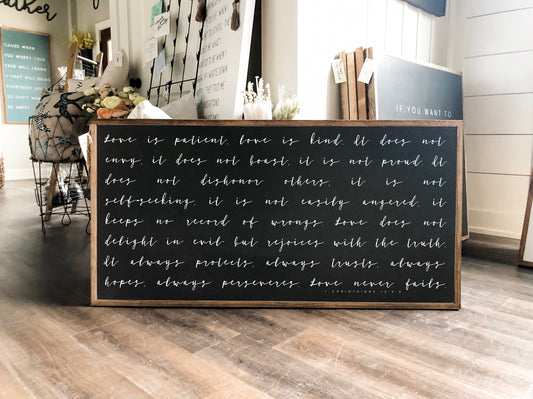 eather
'CAUSE WHEN
YOU WORRY YOUR
FACE WILL FROWN
+ THAT WILL BRING
EVERYBODY DOWN
BE HAPPY
IF YOU WANT TO
Love is patient, love is kind. It does not
envy, it does not boast, it is not proud. It
does not dishonor others, it is not
self-seeking, it is not easily angered, it
keeps no record of wrongs. Love does not
delight in evil but rejoices with the truth.
It always protects, always trusts, always
hopes, always perseveres. Love never fails.
1 CORINTHIANS 13:4-8